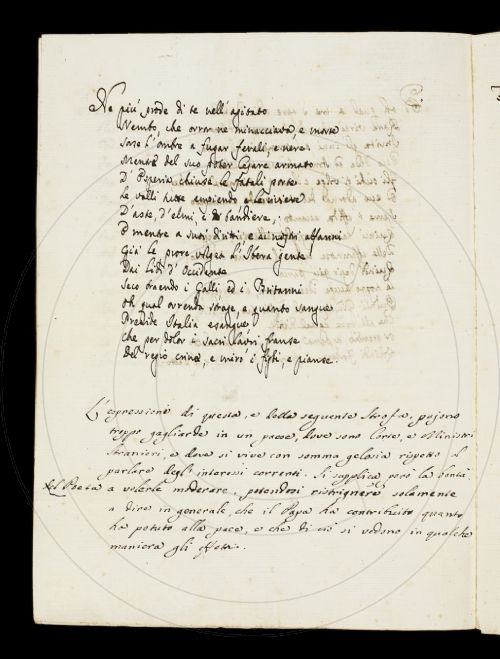 Nè più prode di te nell'agitato
Nembo, che orror ne minacciava, e morte
Sorse l'ombre a fugar ferali, e nere
Mentre del suo poter Cesare armato
D'Esperia chiuse le fatali porte
Le valli tutte empiendo, e le riviere
D'aste, d'elmi, e di bandiere,
E mentre a suoi diritti e ai nostri affanni
Già le prore volgea l'Ibera gente
Dai Lidi d'Occidente
Seco traendo i Galli ed i Britanni
Oh qual orrenda strage, e quanto sangue
Previde Italia esangue
Che per dolor i sacri lauri franse
Del regio crine, e mirò i figli, e pianse.
L'espressioni di questa, e della seguente Strofa, pajono
troppo gagliarde in un paese, dove sono Corte, e Ministri
Stranieri, e dove si vive con somma gelosia rispetto al
parlare degl'interessi correnti. Si supplica però la bontà
del Poeta a volerle moderare, potendosi ristrignere solamente
a dire in generale, che il Papa ha contribuito quanto
ha potuto alla pace, e che di ciò si vedono in qualche
maniera gli effetti.